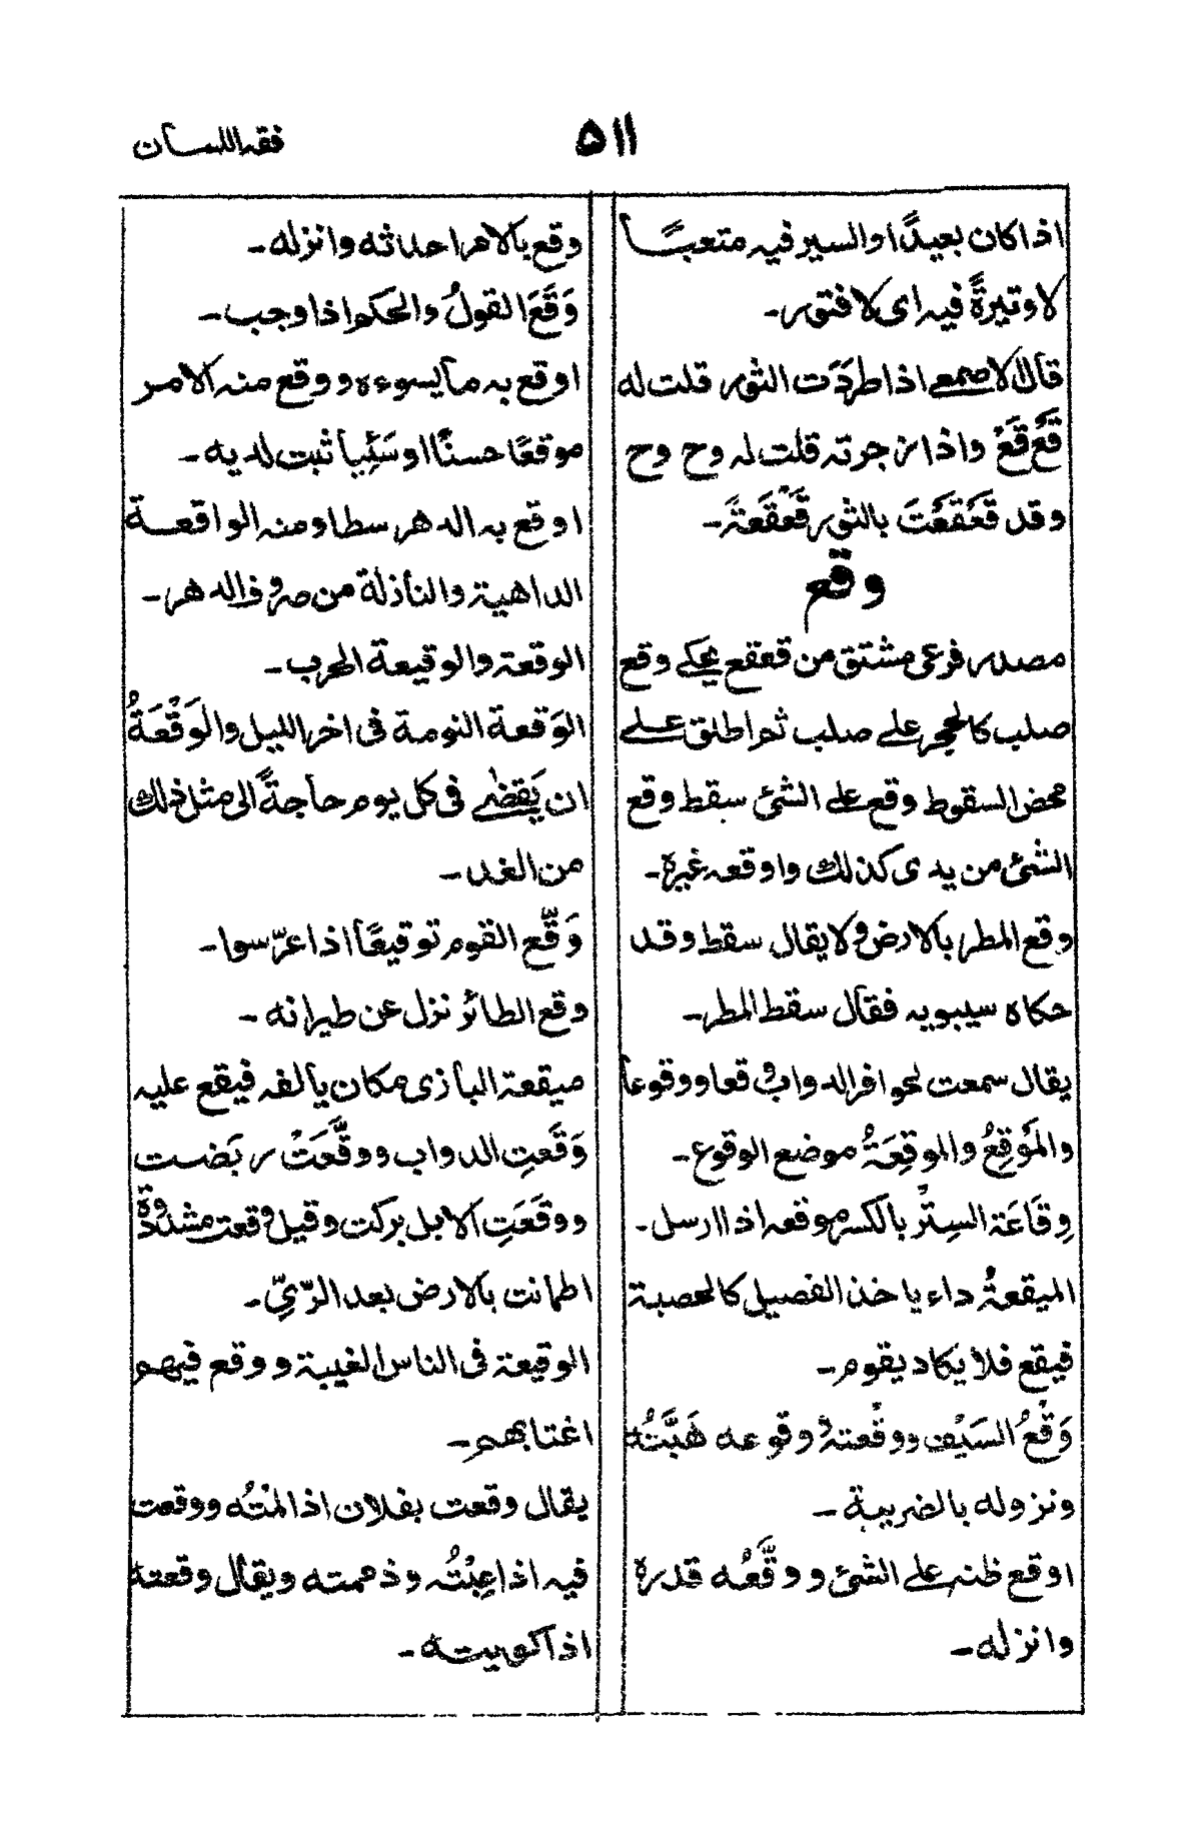 ۵۱۱
فقه اللسان
اذا كان بعيدًا والسير فيه متعبًا
لا وتيرةً فيه اى لا فتور۔
قال الاصمعى اذا طردَت الثور قلت له
قَعْ قَعْ واذا زجرته قلت له وح وح
وقد قَعقَعْتَ بالثور قَعْقَعَتً۔
وقع
مصدر فرعى مشتق من قعقع يحكى وقع
صلب كالحجر على صلب ثم اطلق على
محض السقوط وقع على الشئ سقط وقع
الشئ من يدى كذلك واوقعه غيرة۔
وقع المطر بالارض ولا يقال سقط وقد
حكاه سيبويه فقال سقط المطر۔
يقال سمعت لحوافر الدواب وقعا ووقوعا
والمَوْقِعُ والموقِعَةُ موضع الوقوع۔
وِقَاعَة السِتْر بالكسر موقعه اذا ارسل۔
الميقعةُ داء ياخذ الفصيل كالحصبة
فيقع فلا يكاد يقوم۔
وَقْعُ السَيْف ووقْعتهُ وقوعه هَبَّتُه
ونزوله بالضريبة۔
اوقع ظنه على الشئ ووقَّعُه قدرة
وانزله۔
وقع بالامر احدثه وانزله۔
وَقَعَ القولُ والحكم اذا وجب۔
اوقع به ما يسوءه ووقع منه الامر
موقعًا حسنًا او سَيِّئا ثبت لديه۔
اوقع به الدهر سطا ومنه الواقعة
الداهية والنأذلة من صروف الدهر۔
الوقعة والوقيعة الحرب۔
الوَقعة النومة فى اخر الليل والوَقْعَةُ
ان يَقضى فى كل يوم حاجةً الى مثل ذلك
من الغد۔
وَقَّع القوم توقيعًا اذا عرّسوا۔
وقع الطائر نزل عن طيرانه۔
ميقعة البازى مكان يالفه فيقع عليه
وَقَعَتِ الدواب ووقَّعَتْ ربَضت
ووقَعَتِ الابل بركت وقيل وقعت مشددة
اطمانت بالارض بعد الرّيّ۔
الوقيعة فى الناس الغيبة ووقع فيهم
اغتابهم۔
يقال وقعت بفلان اذا لمْتُه ووقعت
فيه اذا عِبْتُه وذممته ويقال وقعته
اذا كويته۔